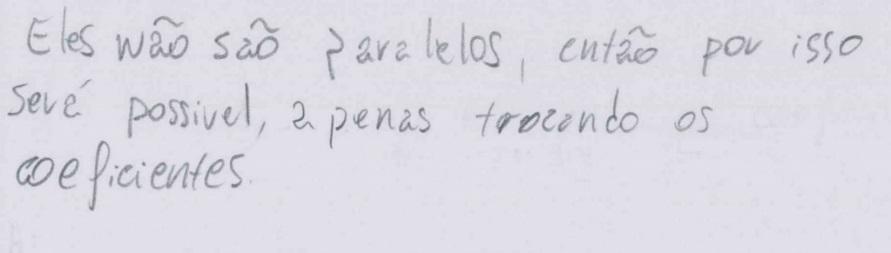 Eles não são paralelos, então por isso
será possivel, apenas trocando os
coeficientes.